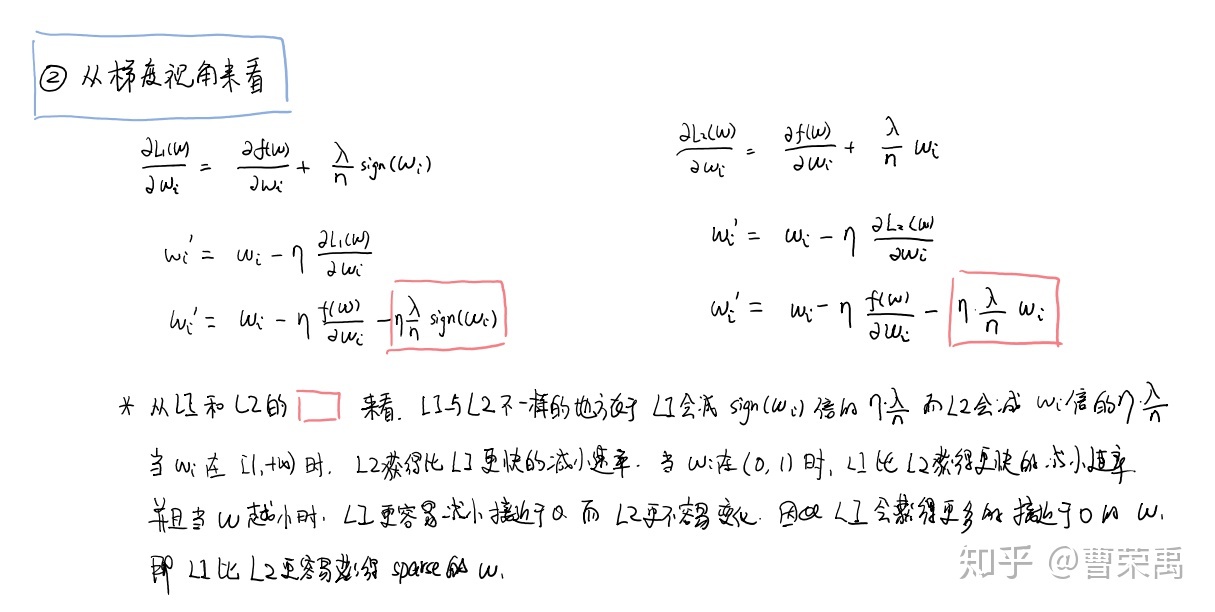 ② 从梯度视角来看
∂L1(w)/∂wi = ∂f(w)/∂wi + λ/n sign(wi)
wi' = wi - η ∂L1(w)/∂wi
wi' = wi - η f(w)/∂wi - η λ/n sign(wi)
∂L2(w)/∂wi = ∂f(w)/∂wi + λ/n wi
wi' = wi - η ∂L2(w)/∂wi
wi' = wi - η f(w)/∂wi - η·λ/n wi
* 从L1和L2的 来看. L1与L2不一样的地方在于 L1会减 sign(wi) 倍的 η·λ/n 而L2会减 wi倍的η·λ/n
当 wi 在 [1,+∞) 时, L2获得比L1更快的减小速率. 当 wi在(0,1)时, L1比L2获得更快的减小速率.
并且当 w 越小时, L1更容易减小接近于0 而 L2更不容易变化. 因此 L1会获得更多的 接近于0的 w,
即 L1比L2更容易获得 sparse的 w.
知乎 @曹荣禹